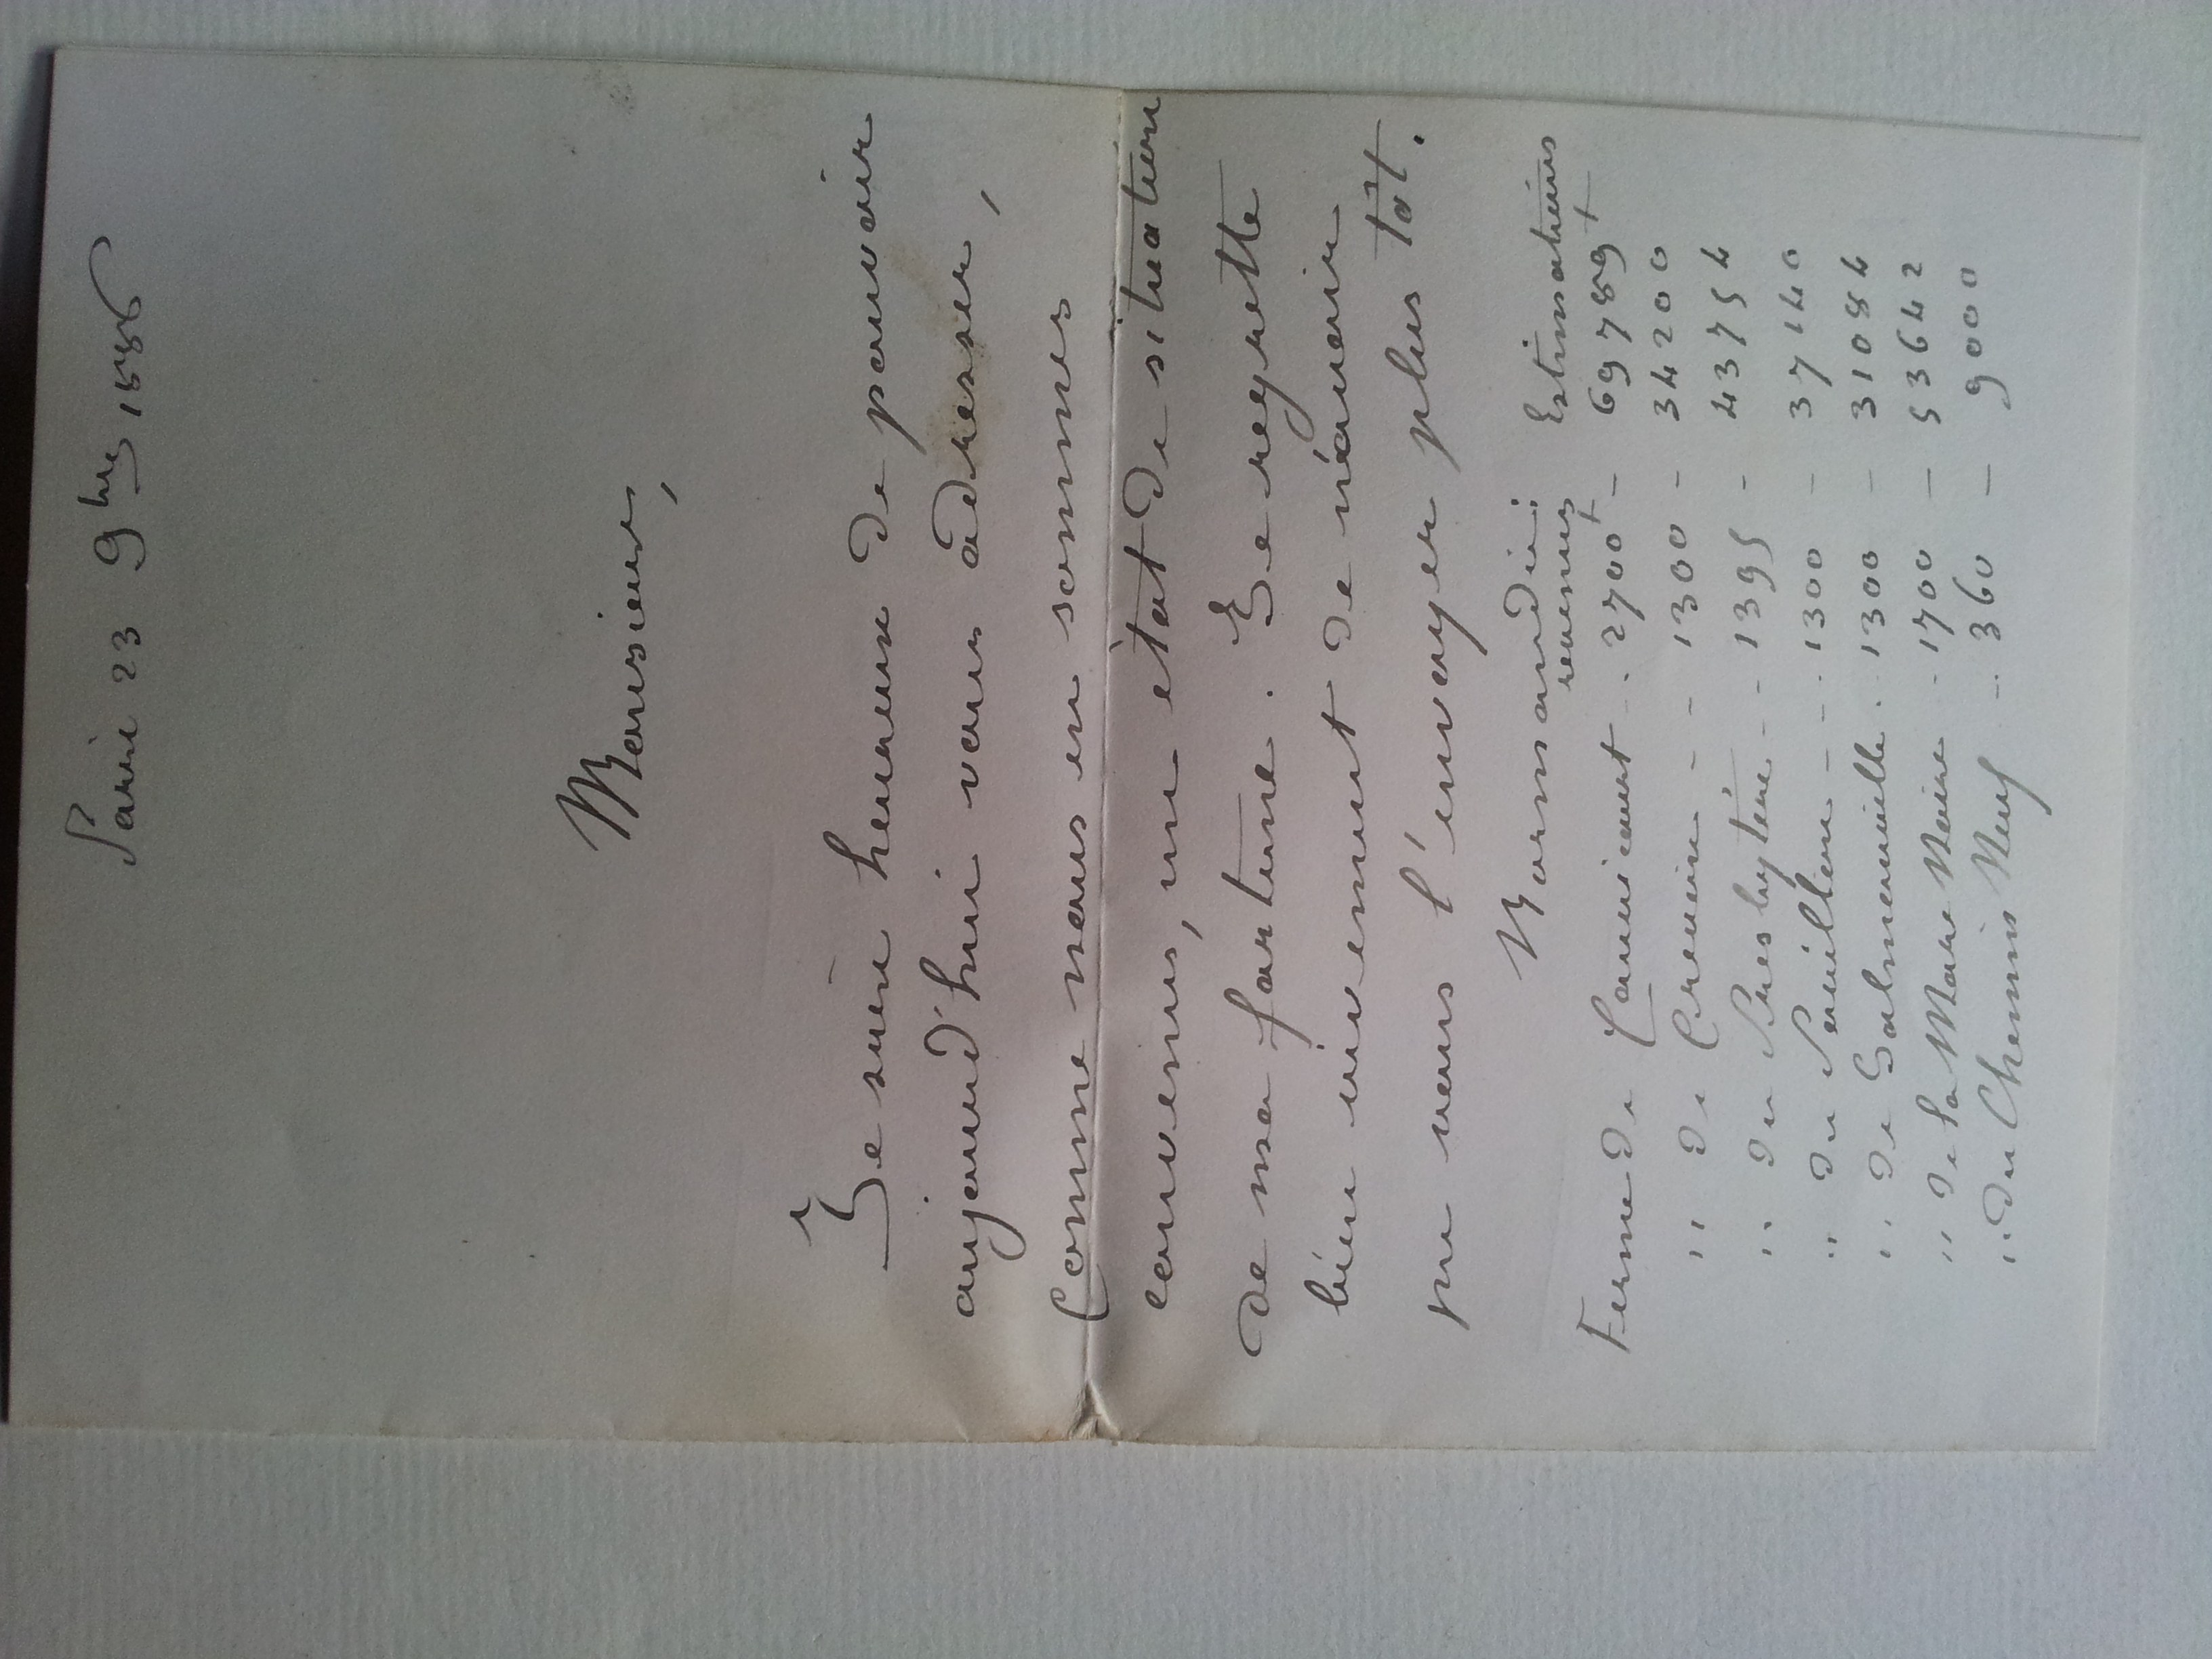 Paris 23 9bre 1886
Monsieur,
Je suis heureux de pouvoir
aujourd'hui vous adresser,
Comme nous en sommes
convenus, un état de situation
de ma fortune. Je regrette
bien vivement de n'avoir
pu vous l'envoyer plus tôt.
Normandie:
revenus Estimations
Ferme de .. 2700f - 69789f
" de - - 1300 - 34200
" du Presbytère - - 1395 - 43754
" du - - . 1300 - 37140
" de Galmanville . . 1300 - 31084
" de la Mare Noire - 1700 - 53642
" du Chemin Neuf - . 360 - 9000